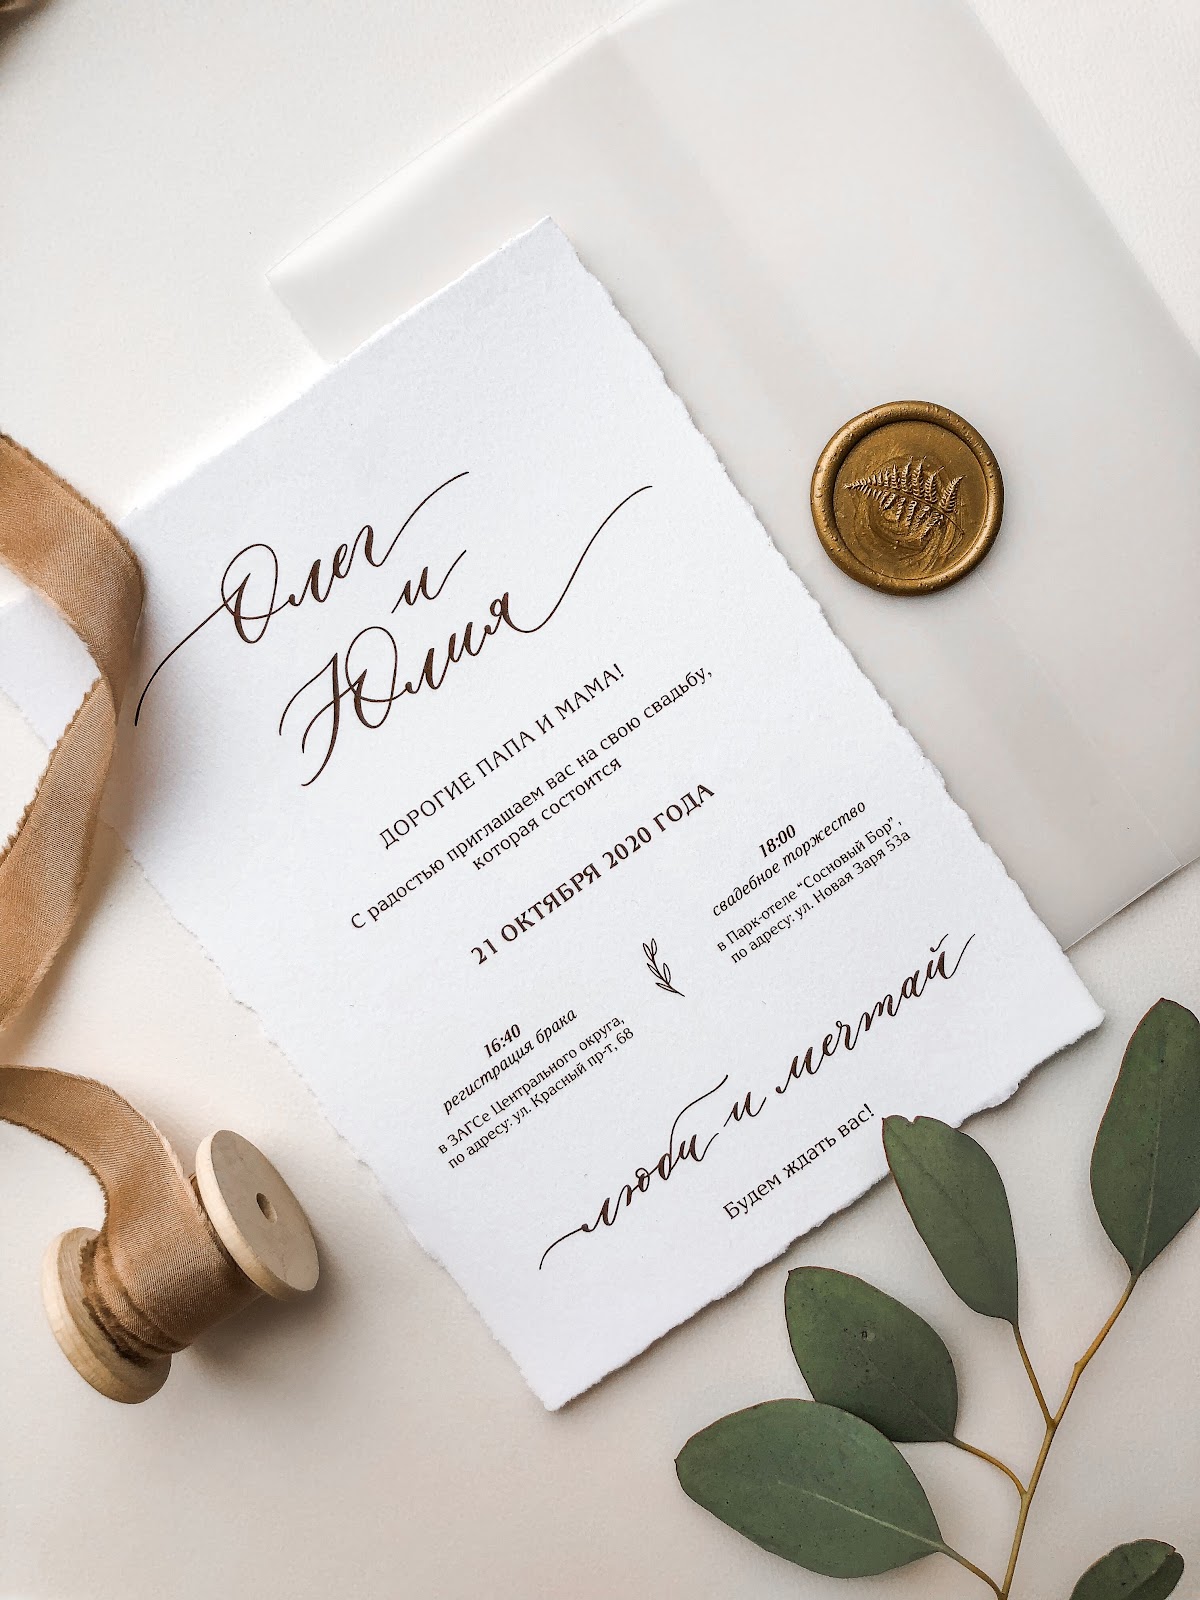 Олег
и
Юлия
ДОРОГИЕ ПАПА И МАМА!
С радостью приглашаем вас на свою свадьбу,
которая состоится
21 ОКТЯБРЯ 2020 ГОДА
16:40
регистрация брака
в ЗАГСе Центрального округа,
по адресу: ул. Красный пр-т, 68
18:00
свадебное торжество
в Парк-отеле "Сосновый Бор",
по адресу: ул. Новая Заря 53а
люби и мечтай
Будем ждать вас!